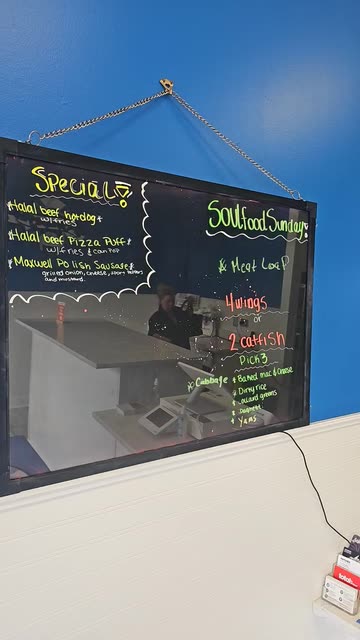 Special!
*Halal beef hotdog*
w/fries
*Halal beef Pizza Puff*
w/fries & can pop
*Maxwell Polish Sausage*
grilled onion, cheese, sport peppers
and mustard.
Soulfood Sunday!
* Meat Loaf
4 wings
or
2 catfish
Pick 3
* Cabbage
* Baked mac & cheese
* Dirty rice
* collard greens
* Yams